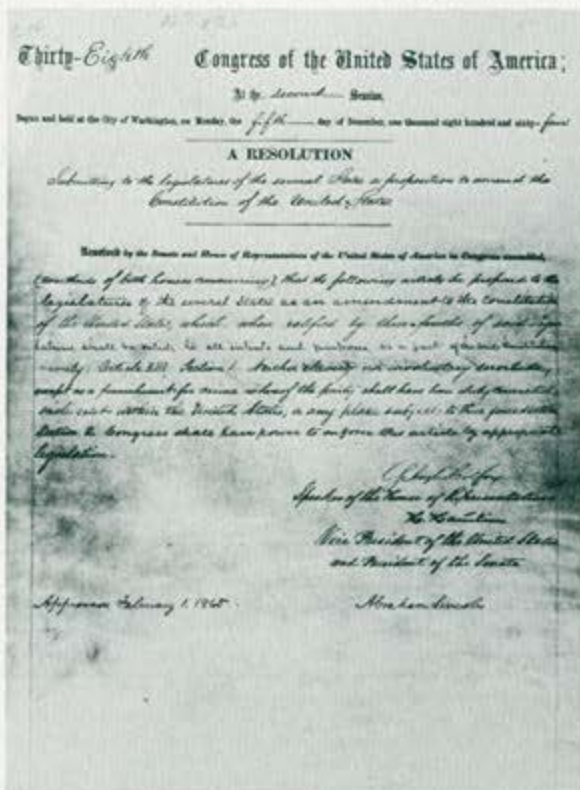 Thirty-Eighth Congress of the United States of America;
At the second Session,
Begun and held at the City of Washington, on Monday, the fifth day of December, one thousand eight hundred and sixty-four
A RESOLUTION
Submitting to the legislatures of the several States a proposition to amend the
Constitution of the United States
Resolved by the Senate and House of Representatives of the United States of America in Congress assembled,
(two thirds of both houses concurring) that the following article be proposed to the
legislatures of the several States as an amendment to the Constitution
of the United States, which, when ratified by three-fourths of said legis
latures shall be valid, to all intents and purposes, as a part of said Constitution
namely: Article XIII. Section 1. Neither slavery nor involuntary servitude,
except as a punishment for crime whereof the party shall have been duly convicted,
shall exist within the United States, or any place subject to their jurisdiction
Section 2. Congress shall have power to enforce this article by appropriate
legislation.
Schuyler Colfax
Speaker of the House of Representatives
H. Hamlin
Vice President of the United States
and President of the Senate
Approved February 1. 1865. Abraham Lincoln